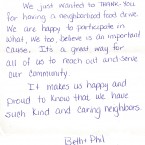 We just wanted to THANK-YOU
for having a neighborhood food drive.
We are happy to participate in
what, We too, believe is an important
cause. It's a great way for
all of us to reach out and serve
our community.
It makes us happy and
proud to know that we have
such kind and caring neighbors.
Beth & Phil